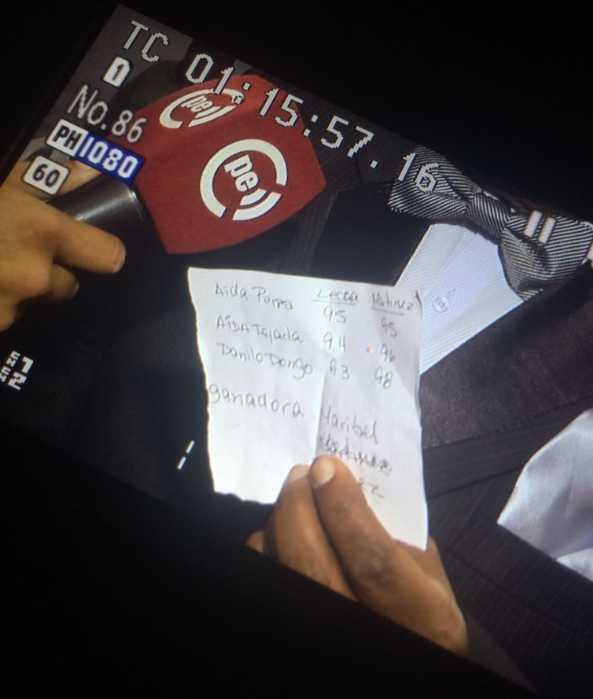 TC 01:15:57.16
1
No.86
PH 1080
60
pe
pe
Lecca
Aida Parra 95 95
Aida Tejada 94 96
Danilo Dongo 93 98
ganadora Maribel